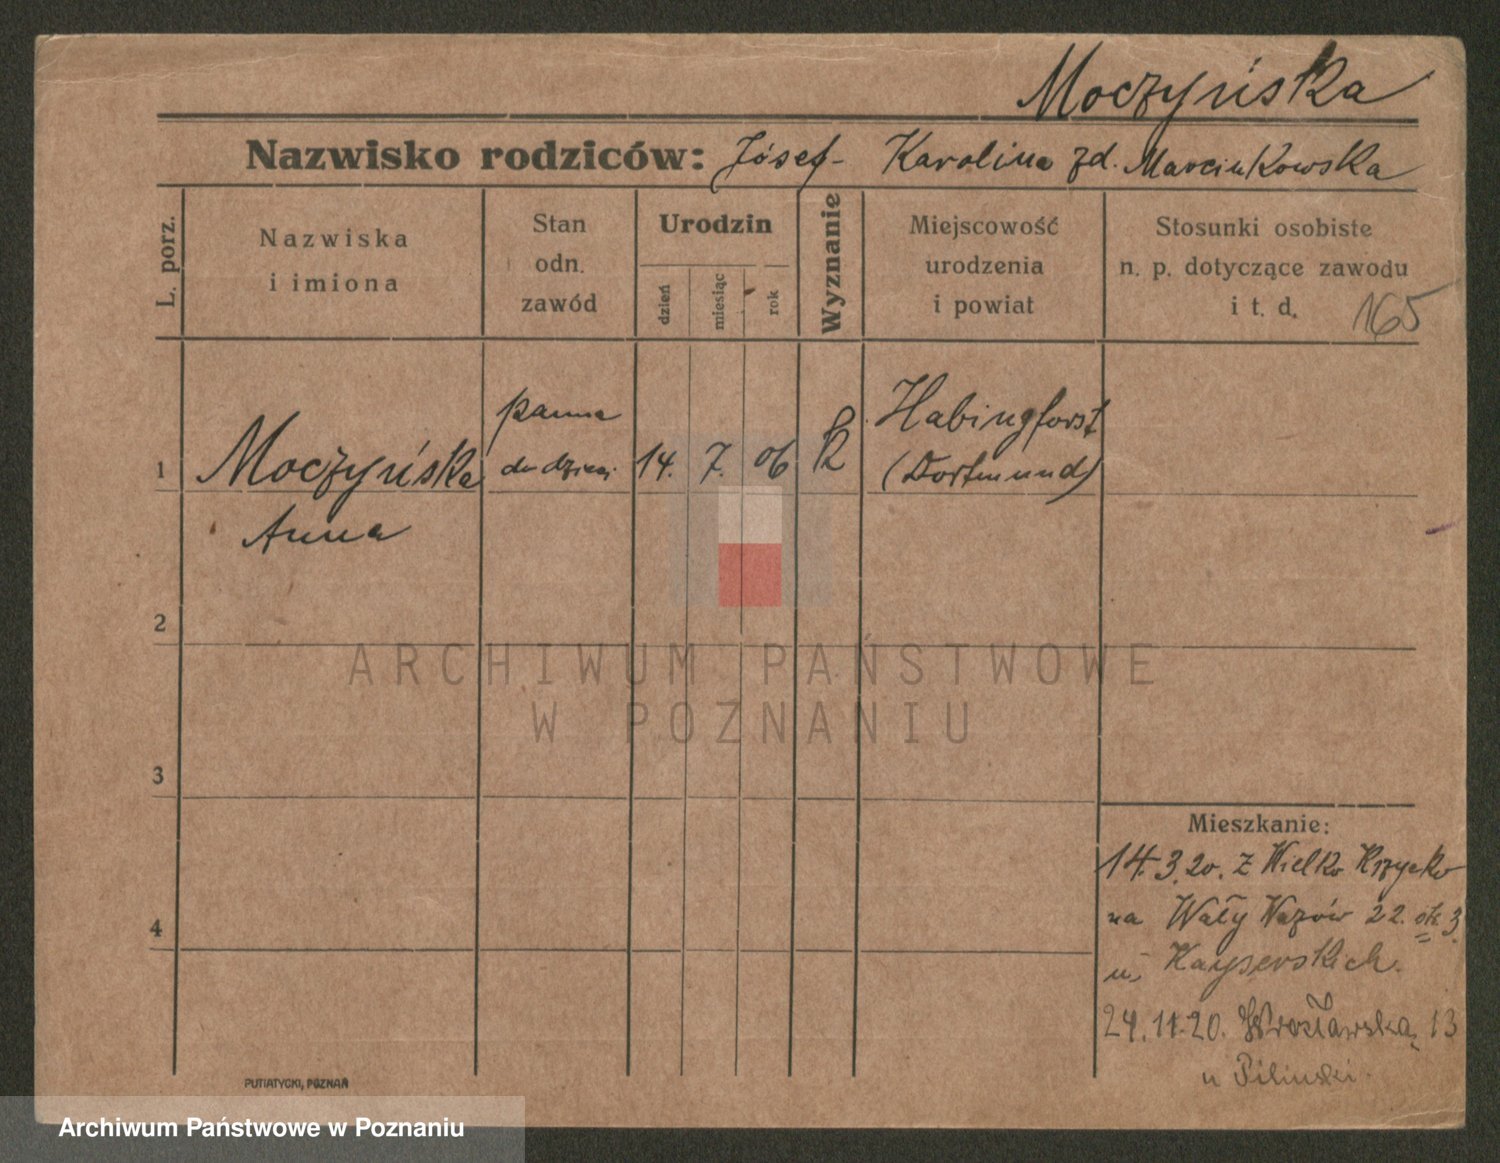 Moczyńska
Nazwisko rodziców: Józef - Karolina zd. Marcinkowska
L. porz.
Nazwiska
i imiona
Stan
odn.
zawód
Urodzin
dzień
miesiąc
rok
Wyznanie
Miejscowość
urodzenia
i powiat
Stosunki osobiste
n. p. dotyczące zawodu
i t. d.
165
1
Moczyńska
Anna
panna
do dzieci
14. 7. 06
k
Habingforst
(Dortmund)
2
3
4
ARCHIWUM PAŃSTWOWE
W POZNANIU
Mieszkanie:
14.3.20. z Wielko Krzycko
na Wały Wazów 22. 3
u Kayserskich.
24.11.20. Wrocławska 13
u Pilinski.
PUTIATYCKI, POZNAŃ
Archiwum Państwowe w Poznaniu